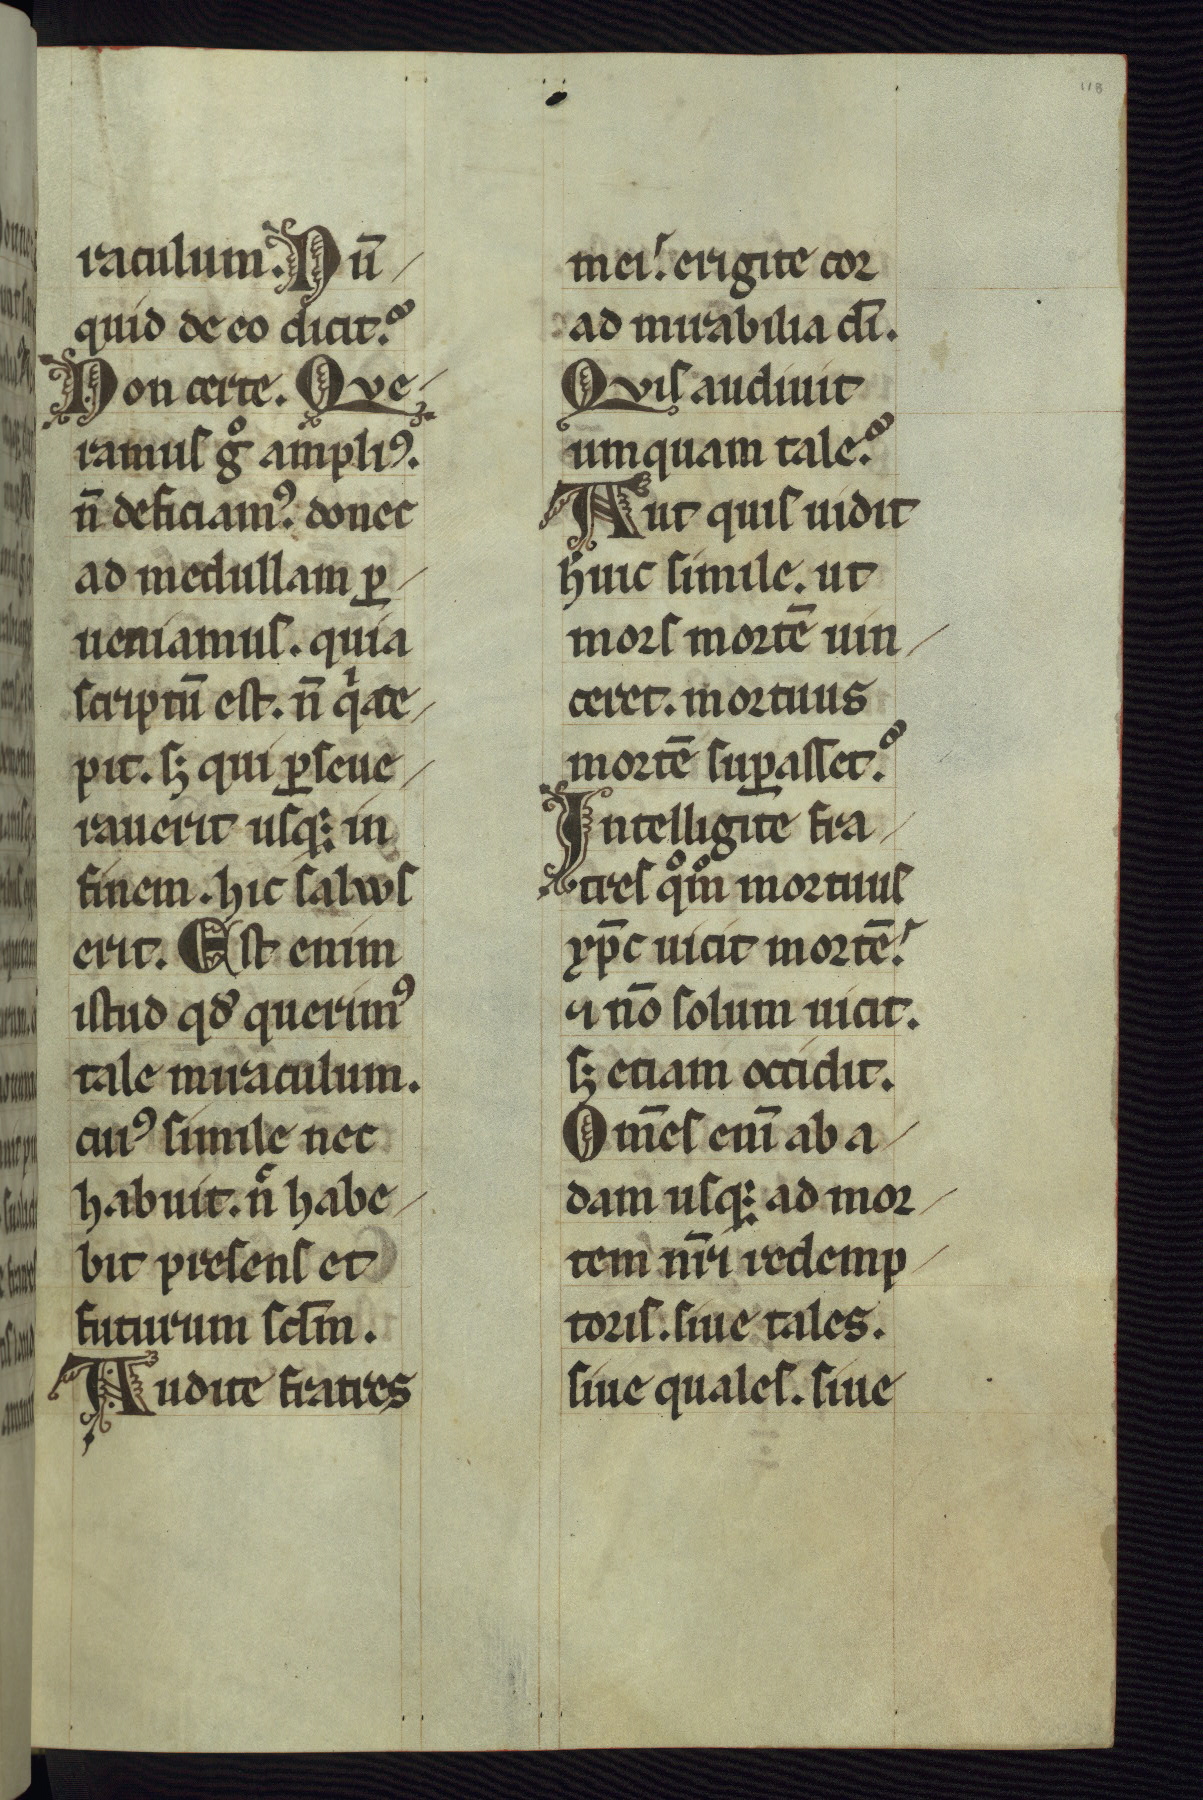 118
raculum. Nū
quid de eo dicit?
Non certe. Que
ramus gͦ ampliꝰ.
n̄ deficiamꝰ. donec
ad medullam ꝑ
ueniamus. quia
scriptū est. n̄ qͥ ce
pit. sꝫ qui ꝑseue
rauerit usqꝫ in
finem. hic saluus
erit. Est enim
istud qd̕ querimꝰ
tale miraculum.
cuiꝰ simile nec
habuit. n̄ habe
bit presens et
futurum scl̄m.
Audite fratres
mei. erigite cor
ad mirabilia dī.
Quis audiuit
umquam tale?
Aut quis uidit
huic simile. ut
mors mortē uin
ceret. mortuus
mortē suꝑasset?
Intelligite fra
tres qͦm̄ mortuus
xp̄c uicit mortē.
⁊ nō solum uicit.
sꝫ etiam occidit.
Om̄es eni̅ ab a
dam usqꝫ ad mor
tem nr̄i redemp
toris. siue tales.
siue quales. siue